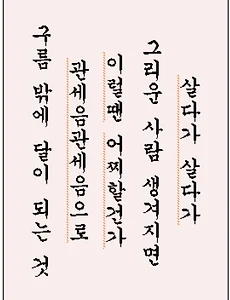 살다가 살다가
그리운 사람 생겨지면
이럴땐 어찌할건가
관세음관세음으로
구름 밖에 달이 되는 것